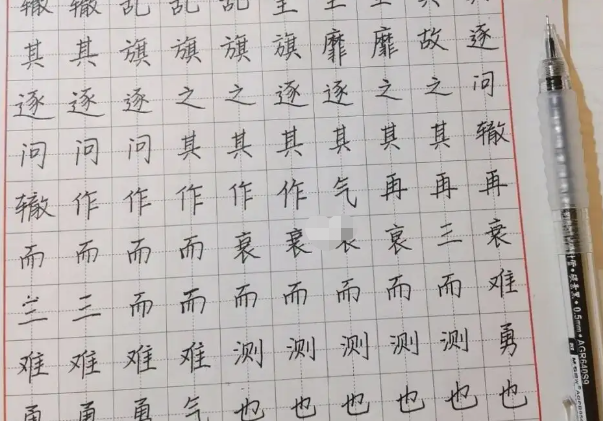 辙 辙 乱 乱 乱
其 其 旗 旗 旗 旗 靡 靡 故 逐
逐 逐 逐 之 之 逐 逐 之 之 问
问 问 问 其 其 其 其 其 其 辙
辙 作 作 作 作 作 气 再 再 再
而 而 而 而 衰 衰 衰 三 衰
三 三 而 而 而 而 而 而 而 难
难 难 难 难 测 测 测 测 测 勇
勇 勇 勇 气 也 也 也 也 也 也
0.5mm